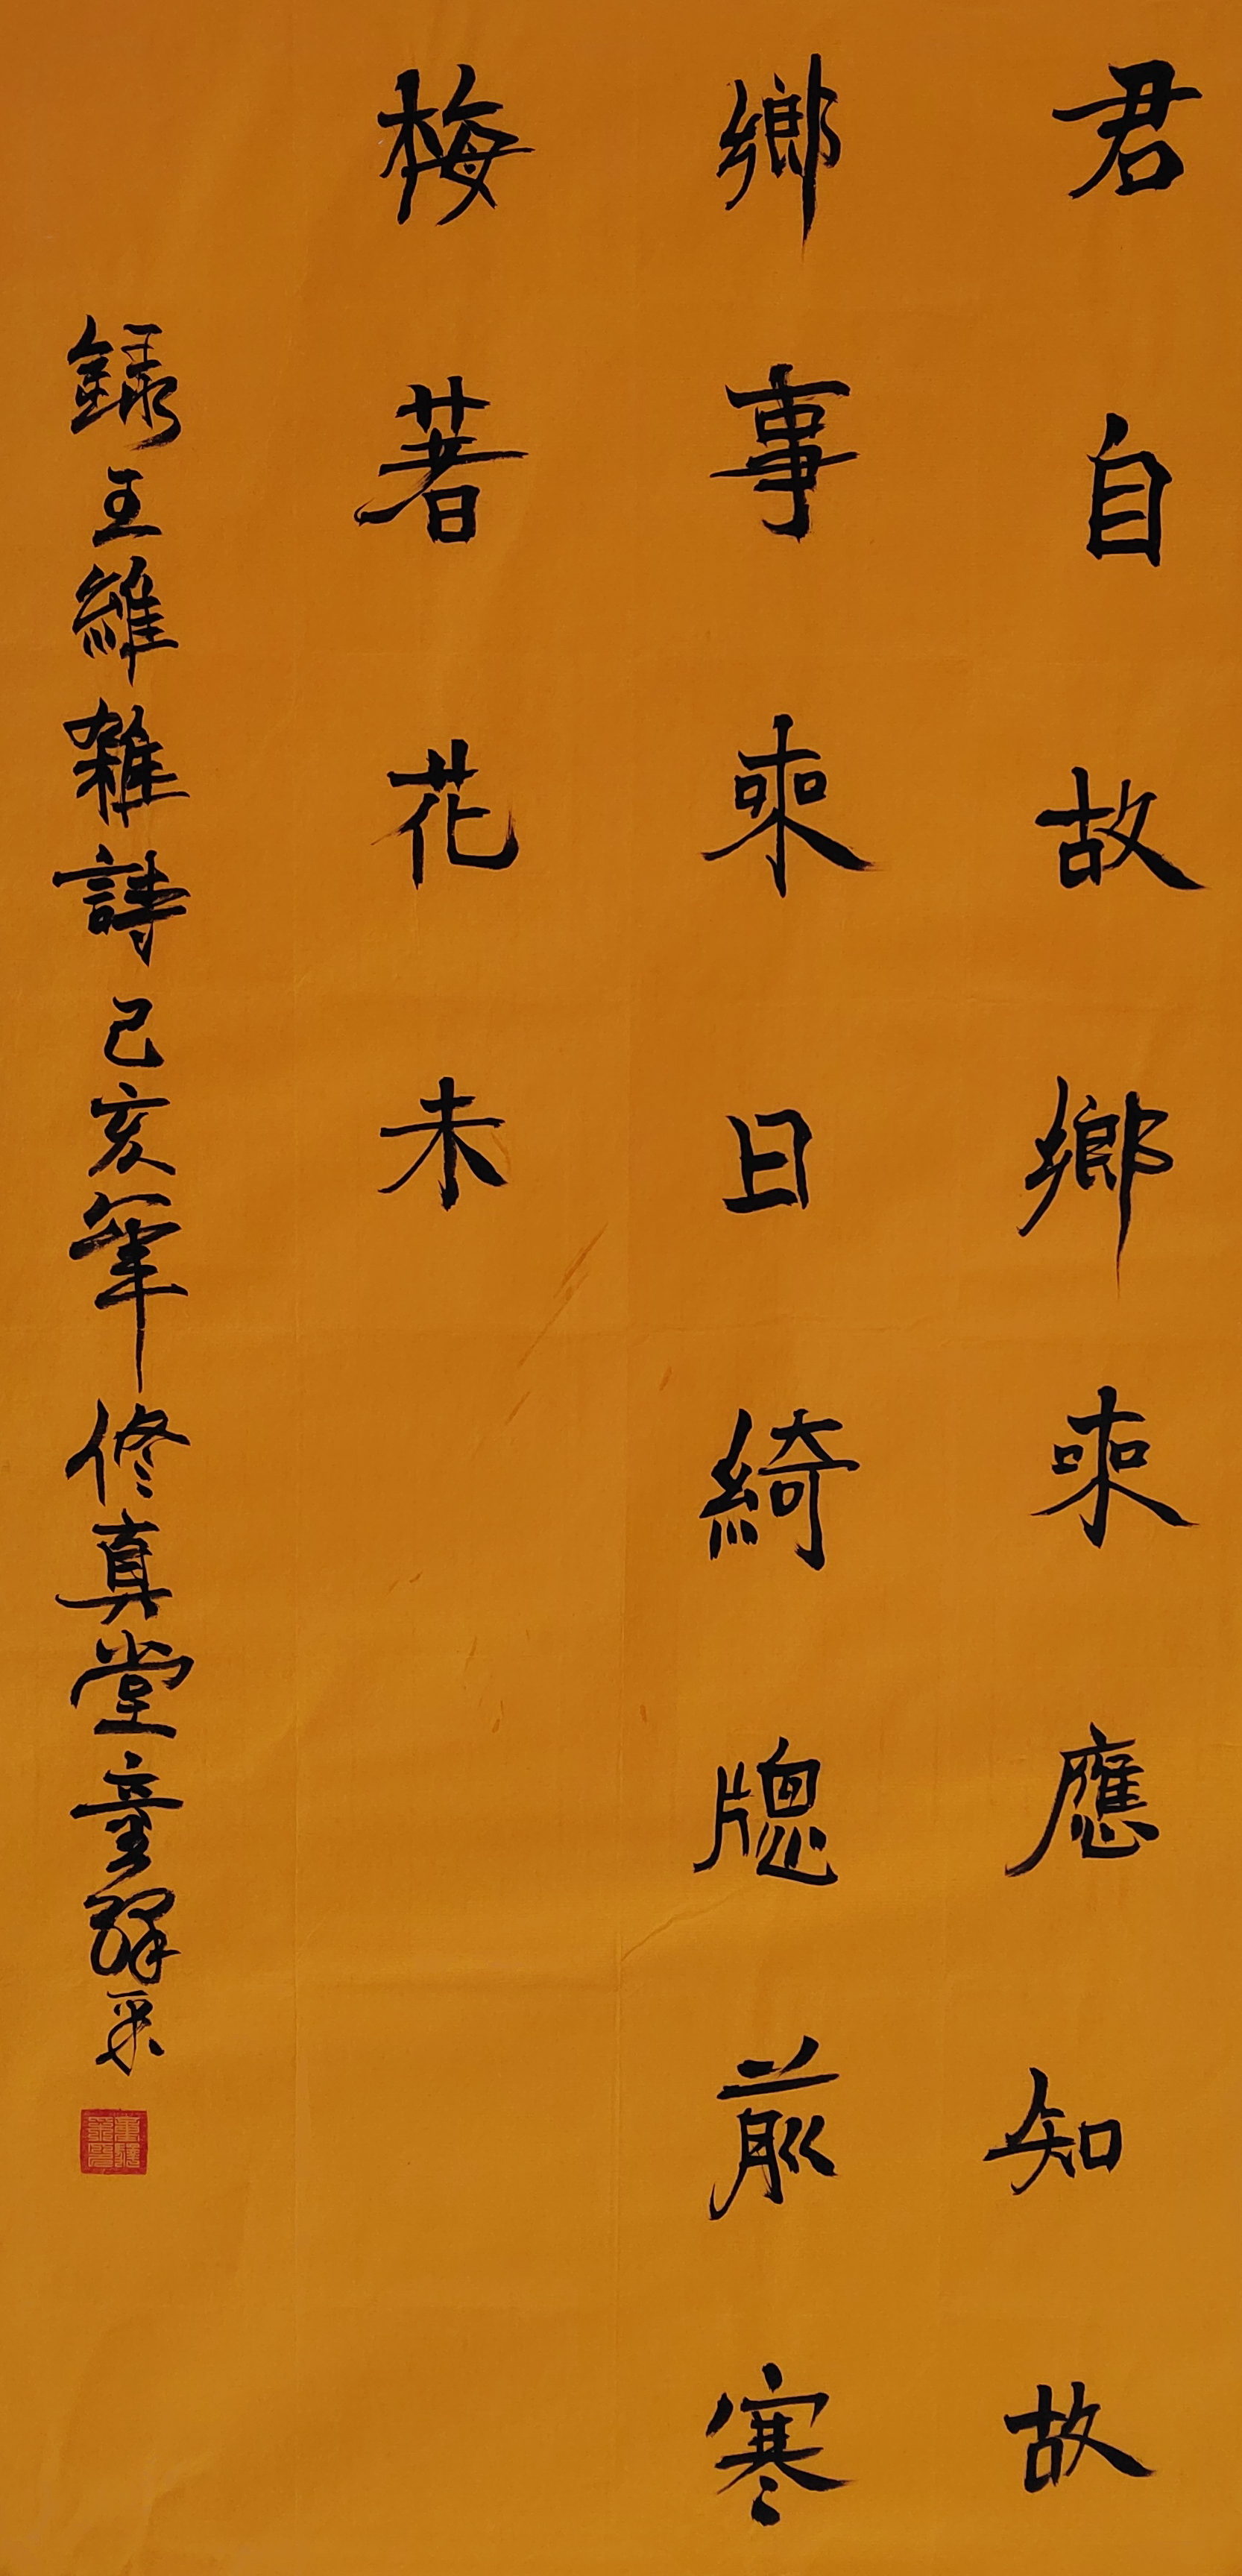 君自故鄉來應知故
鄉事來日綺牎前寒
梅著花未
録王維雜詩己亥年修真堂童釋采